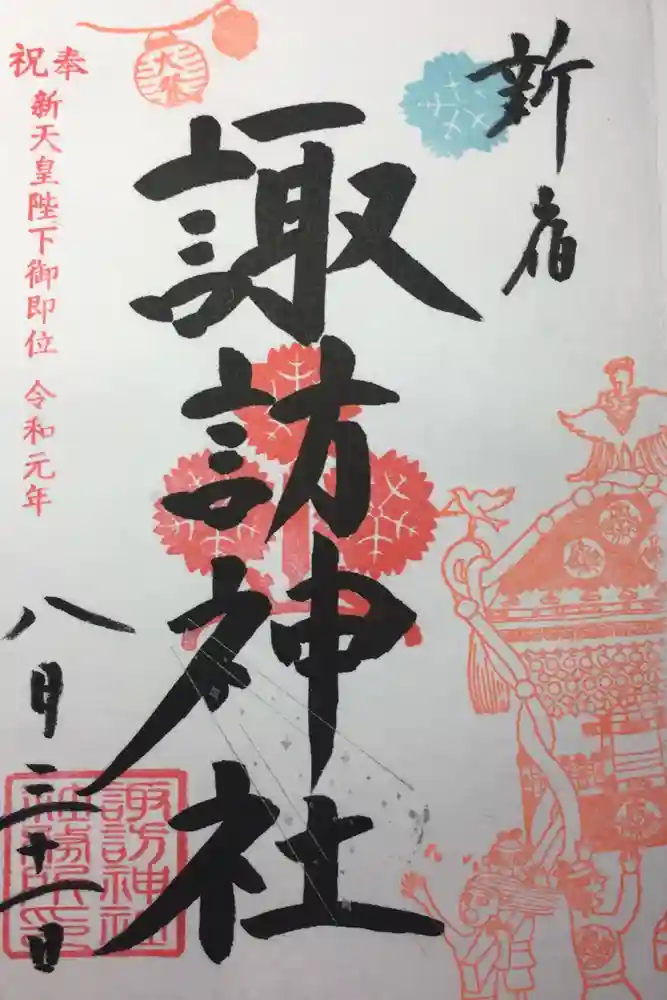 新宿
諏訪神社
大祭
奉祝
新天皇陛下御即位 令和元年
八月三十一日
諏訪神社
社務所印